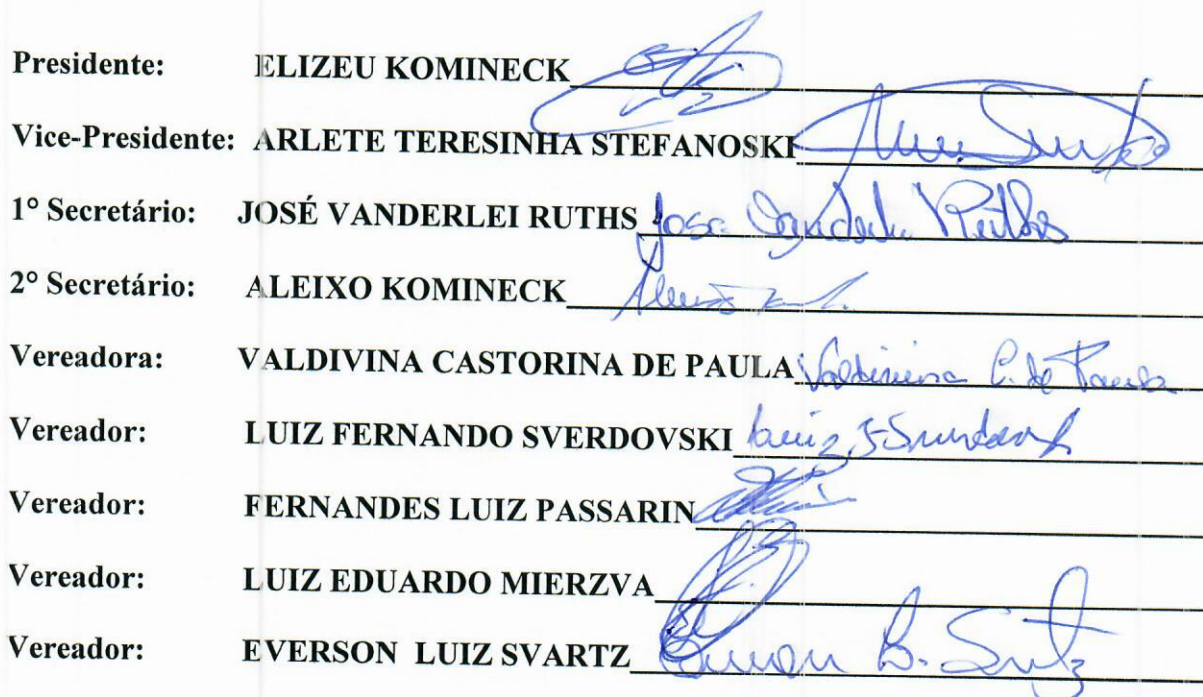 Presidente: ELIZEU KOMINECK
Vice-Presidente: ARLETE TERESINHA STEFANOSKI
1° Secretário: JOSÉ VANDERLEI RUTHS Jose Vanderlei Ruths
2° Secretário: ALEIXO KOMINECK
Vereadora: VALDIVINA CASTORINA DE PAULA Valdivina C. de Paula
Vereador: LUIZ FERNANDO SVERDOVSKI Luiz F.
Vereador: FERNANDES LUIZ PASSARIN
Vereador: LUIZ EDUARDO MIERZVA
Vereador: EVERSON LUIZ SVARTZ